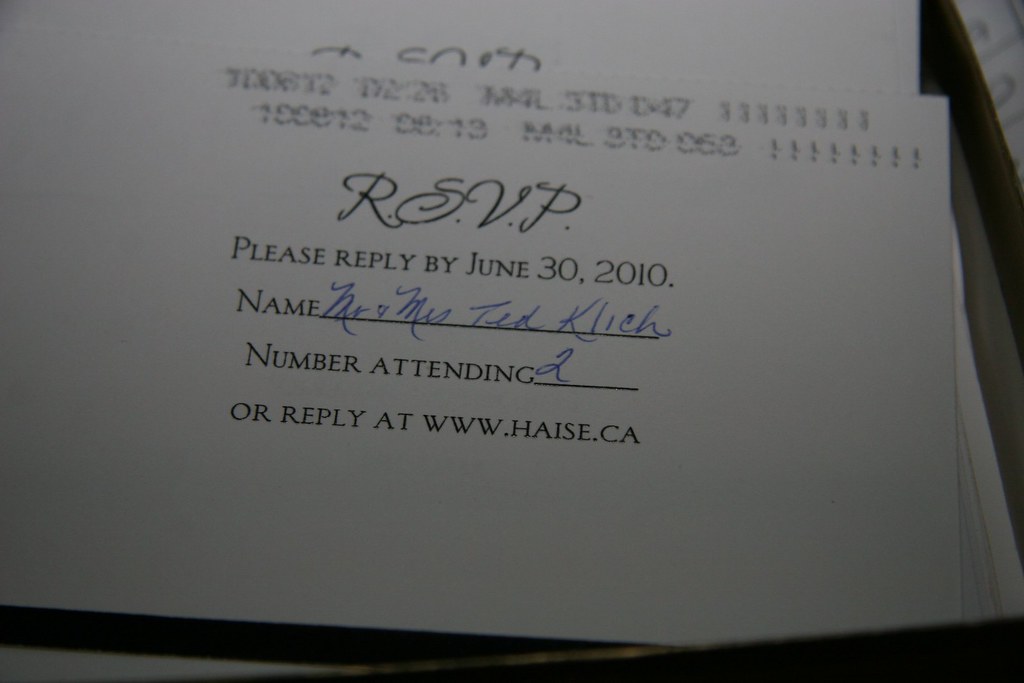 100612 02:26 M4L 3TD 047 !!!!!!!!
100612 06:13 M4L 3TD 063 !!!!!!!!
R.S.V.P.
PLEASE REPLY BY JUNE 30, 2010.
NAME Mr & Mrs Ted Klich
NUMBER ATTENDING 2
OR REPLY AT WWW.HAISE.CA